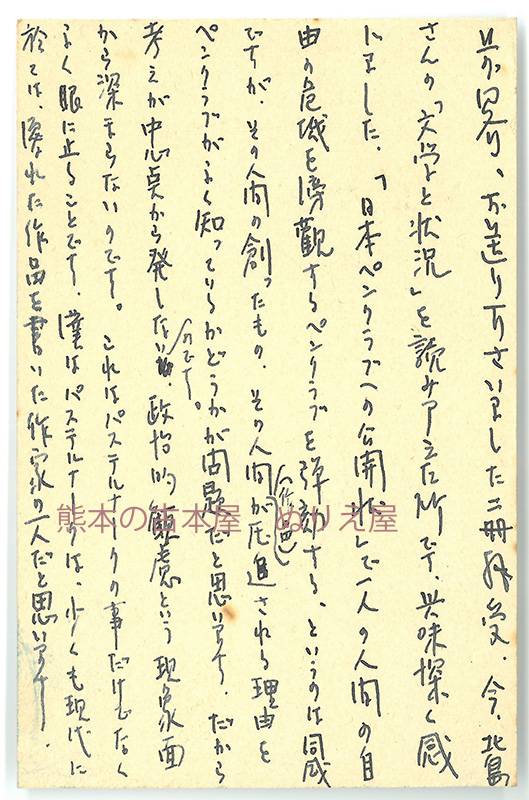 前略、お送り下さいました二冊拝受、今、北島
さんの「文学と状況」を読み了えた所です、興味深く感
じました。「日本ペンクラブへの公開状」で一人の人間の自
由の危機を傍観するペンクラブを弾劾する、というのは同感
ですが、その人間の創ったもの、その人間(作品)が圧迫される理由を
ペンクラブがよく知っているかどうかが問題だと思います。だから
考えが中心点から発しないのです。政治的顧慮という現象面
から深まらないのです。これはパステルナークの事だけでなく
よく眼に止ることです。僕はパステルナークは、少くも現代に
於ては、優れた作品を書いた作家の一人だと思います。
熊本の古本屋 ぬりえ屋